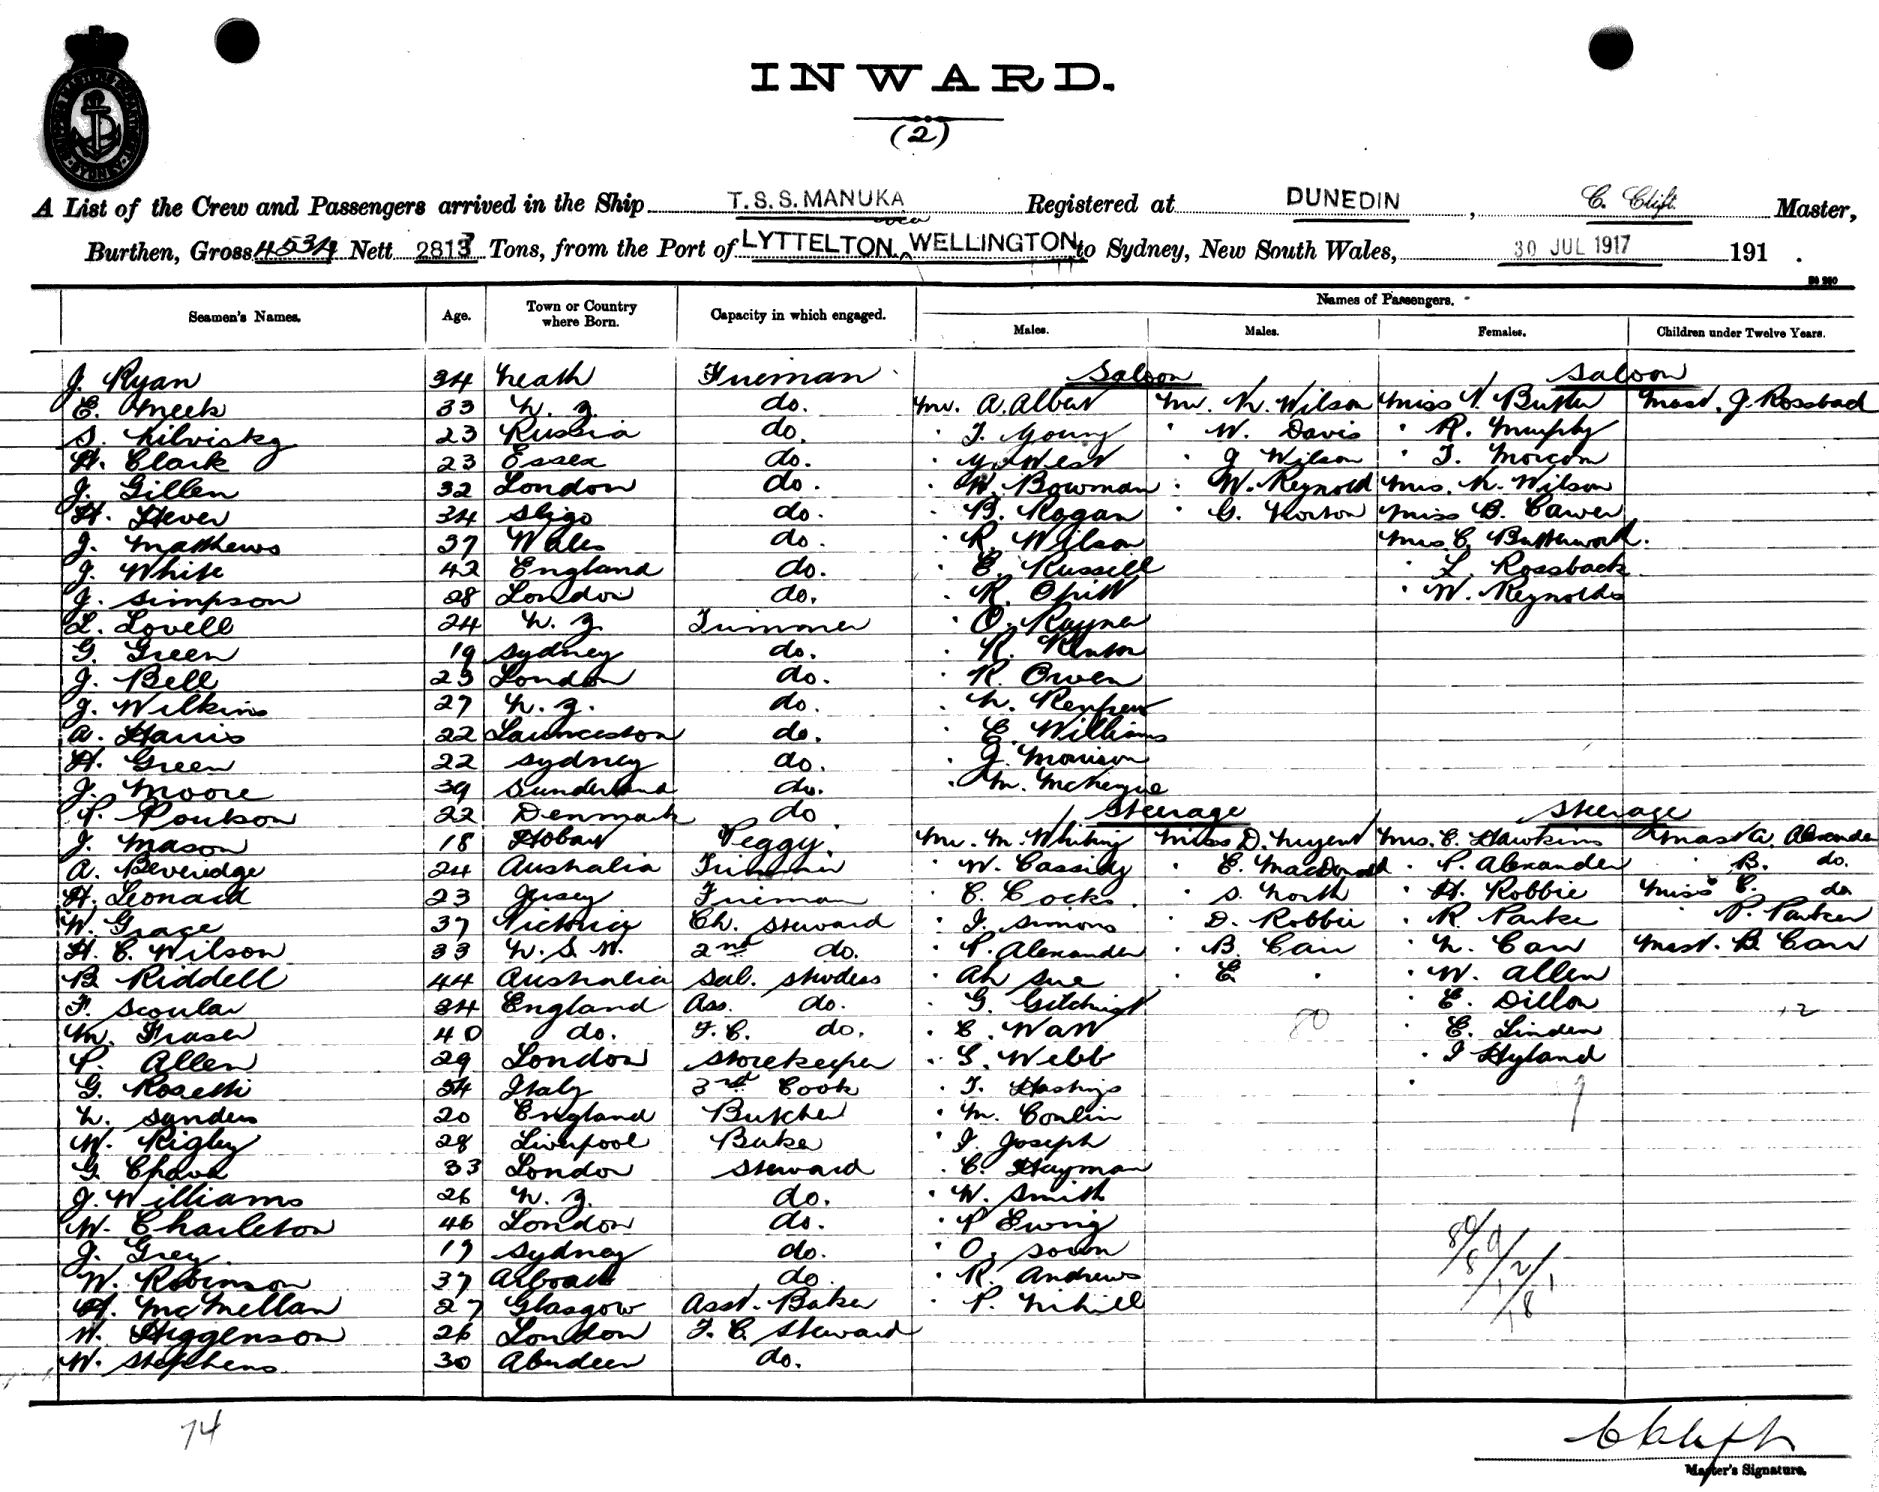 INWARD.
(2)
A List of the Crew and Passengers arrived in the Ship T.S.S. MANUKA Registered at DUNEDIN, C. Clift Master,
via
Burthen, Gross 4534 Nett 2813 Tons, from the Port of LYTTELTON. WELLINGTON to Sydney, New South Wales, 30 JUL 1917 191 .
Names of Passengers.
Seamen's Names. Age. Town or Country where Born. Capacity in which engaged. Males. Males. Females. Children under Twelve Years.
J. Ryan 34 Neath Fireman Saloon Saloon
E. Meek 33 N. Z. do. Mr. A. Albert Mr. N. Wilson Miss V. Butler Mast. J. Rossback
S. 23 Russia do. " T. Young " W. Davis " R. Murphy
H. Clark 23 Essex do. " West " J Wilson " T. Morcom
J. Gillen 32 London do. " W. Bowman " W. Reynold Mrs. N. Wilson
H. Hever 34 Sligo do. " B. Kogan " G. Horton Miss B. Cawer
J. Matthews 37 Wales do. " R. Wilson Mrs. C. Butterworth.
J. White 42 England do. " E. Russell " L. Rossback
J. Simpson 28 London do. " R. " W. Reynolds
L. Lovell 24 N. Z. Trimmer " O. Rayner
G. Green 19 Sydney do. " R.
J. Bell 23 London do. " R. Owen
J. Wilkins 27 N. Z. do. " N. Renfrew
A. Harris 22 Launceston do. " E. Williams
H. Green 22 Sydney do. " J. Morrison
J. Moore 39 Sunderland do. " M. McKenzie
P. Poulson 22 Denmark do Steerage Steerage
J. Mason 18 Hobart Peggy. Mr. M. Whiting Miss D. Nugent Mrs. E. Hawkins Mast A. Alexander
A. Beveridge 24 Australia Trimmer " W. Cassidy " E. MacDonald " P. Alexander " B. do.
H. Leonard 23 Jersey Fireman " C. Cocks. " S. North " H. Robbie Miss C. do
W. Grace 37 Victoria Ch. Steward " J. Simons " D. Robbie " R. Parker " P. Parker
H. C. Wilson 33 N. S. W. 2nd do. " P. Alexander " B. Carr " N. Carr Mast. B. Carr
B. Riddell 44 Australia Sal. Stwdess " Ah Sue " E. " " W. Allen
F. Scoular 34 England Ass. do. " G. Gilchrist " E. Dillon
M. Fraser 40 do. F. C. do. " C. Watt 80 " E. Linden 12
P. Allen 29 London Storekeeper " G. Webb " J Hyland
G. Rosetti 54 Italy 3rd Cook " T. Hastings "
N. Synders 20 England Butcher " M. Conlin 9
W. Rigby 28 Liverpool Baker " J. Joseph
G. 33 London Steward " C. Hayman
J. Williams 26 N. Z. do. " W. Smith
W. Charleton 46 London do. " P Ewing
J. Grey 19 Sydney do. " O.
W. Robinson 37 do. " R. Andrews
H. McMellan 27 Glasgow Asst. Baker " P. Nihill
W. Higgenson 26 London F. C. Steward
W. Stephens 30 Aberdeen do.
74
C Clift
Master's Signature.